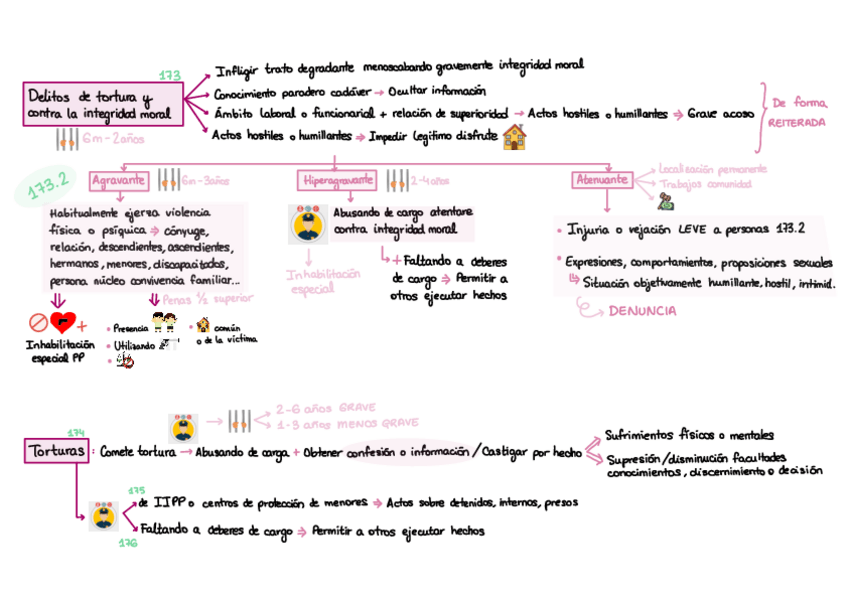 173
Infligir trato degradante menoscabando gravemente integridad moral
Delitos de tortura y
contra la integridad moral
Conocimiento paradero cadáver → Ocultar información
Ámbito laboral o funcionarial + relación de superioridad → Actos hostiles o humillantes ⇒ Grave acoso
Actos hostiles o humillantes ⇒ Impedir legítimo disfrute
De forma
REITERADA
6m - 2años
173.2
Agravante
6m - 3años
Habitualmente ejerza violencia
física o psíquica ⇒ cónyuge,
relación, descendientes, ascendientes,
hermanos, menores, discapacitados,
persona núcleo convivencia familiar...
Penas ½ superior
+
Inhabilitación
especial PP
• Presencia
• Utilizando
•
• común
o de la víctima
Hiperagravante
2-4años
Abusando de cargo atentare
contra integridad moral
Inhabilitación
especial
+ Faltando a deberes
de cargo ⇒ Permitir a
otros ejecutar hechos
Atenuante
Localización permanente
Trabajos comunidad
• Injuria o vejación LEVE a personas 173.2
• Expresiones, comportamientos, proposiciones sexuales
Situación objetivamente humillante, hostil, intimid.
DENUNCIA
174
2-6 años GRAVE
1-3 años MENOS GRAVE
Torturas : Comete tortura → Abusando de carga + Obtener confesión o información / Castigar por hecho
Sufrimientos físicos o mentales
Supresión/disminución facultades
conocimientos, discernimiento o decisión
175
de IIPP o centros de protección de menores ⇒ Actos sobre detenidos, internos, presos
Faltando a deberes de cargo ⇒ Permitir a otros ejecutar hechos
176